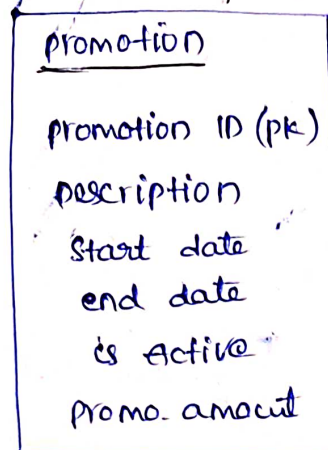 promotion
promotion ID (pk)
Description
Start date
end date
is Active
promo. amocut